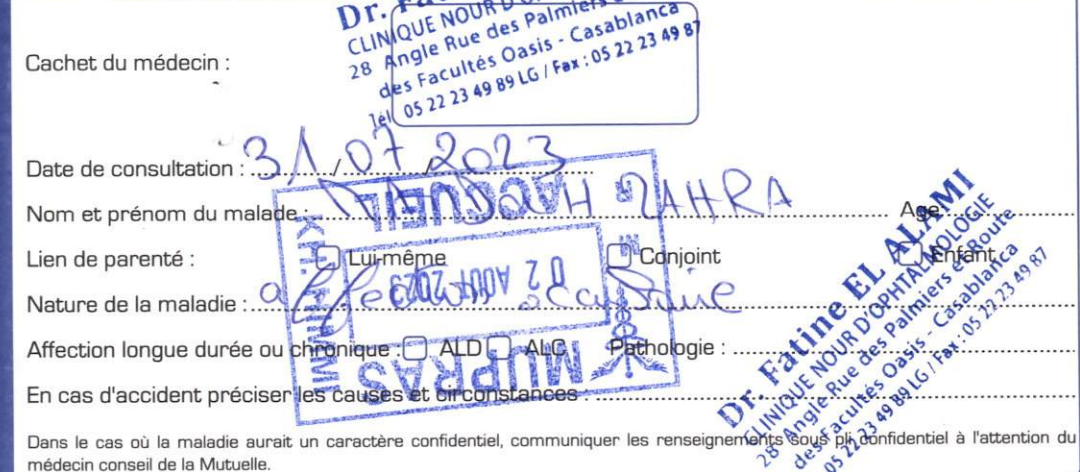 Dr. Fa
CLINIQUE NOUR D'O
28 Angle Rue des Palmiers
des Facultés Oasis - Casablanca
Tél 05 22 23 49 89 LG / Fax : 05 22 23 49 87
Cachet du médecin :
Date de consultation : 31/07/2023
Nom et prénom du malade : ZAHRA Age
Lien de parenté : Lui-même Conjoint Enfant
Nature de la maladie : affection oculaire
Affection longue durée ou chronique : ALD ALC Pathologie :
En cas d'accident préciser les causes et circonstances :
Dans le cas où la maladie aurait un caractère confidentiel, communiquer les renseignements sous pli confidentiel à l'attention du
médecin conseil de la Mutuelle.
ACCUEIL
02 AOUT 2023
MUPRAS
Dr. Fatine EL ALAMI
CLINIQUE NOUR D'OPHTALMOLOGIE
28 Angle Rue des Palmiers et Route
des Facultés Oasis - Casablanca
05 22 23 49 89 LG / Fax : 05 22 23 49 87